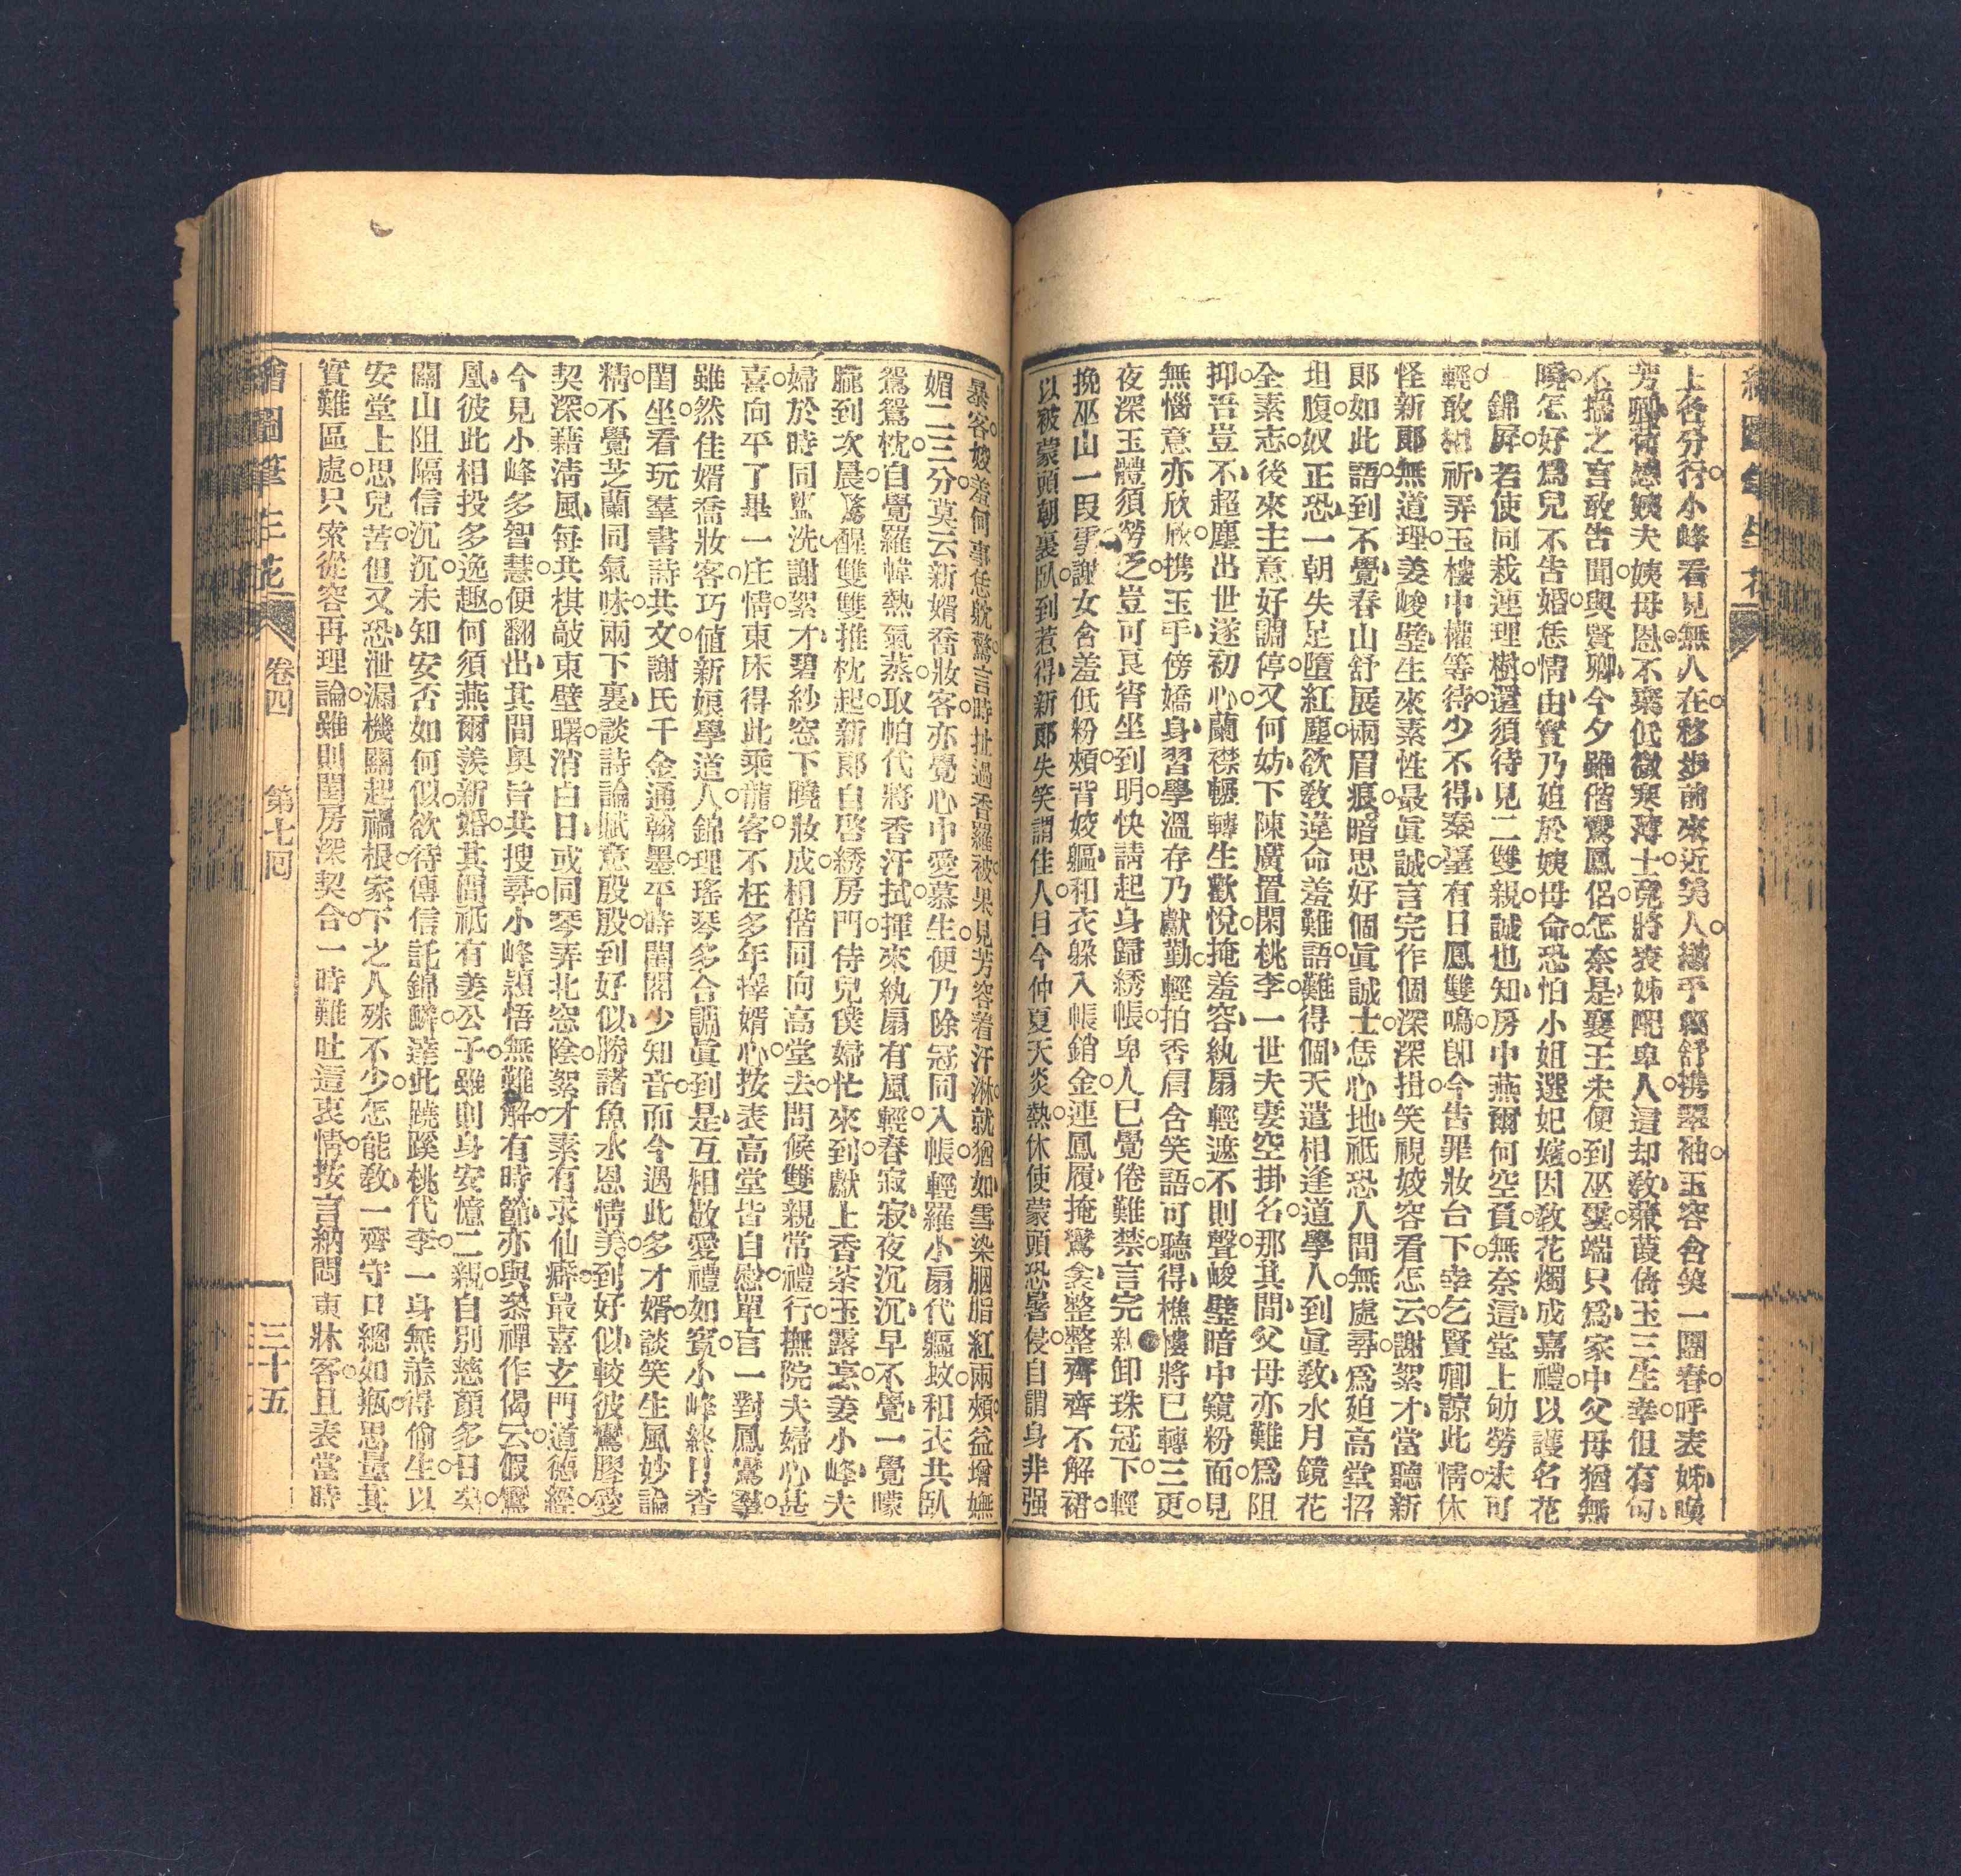 上各分行小峰看見無人在移步前來近美人纖手輕舒携翠袖玉容含笑一團春呼表姊喚
芳卿荷德姨夫姨母恩不棄低微寒薄士竟將表姊配卑人這却敎蒹葭倚玉三生幸但有句
不揣之言敢告聞與賢卿今夕雖偕鸞鳳侶怎奈是襄王未便到巫雲端只爲家中父母猶無
曉怎好爲兒不告婚恁情由實乃廹於姨母命恐怕小姐選妃嬪因敎花燭成嘉禮以護名花
錦屏若使同栽連理樹還須待見二雙親誠也知房中燕爾何空負無奈這堂上劬勞未可
輕敢相祈弄玉樓中權等待少不得秦臺有日鳳雙鳴卽今告罪妝台下幸乞賢卿諒此情休
怪新郎無道理姜峻璧生來素性最眞誠言完作個深深揖笑視姣容看怎云謝絮才當聽新
郎如此語到不覺春山舒展兩眉痕暗思好個眞誠士恁心地祗恐人間無處尋爲廹高堂招
坦腹奴正恐一朝失足墮紅塵欲敎違命羞難語難得個天遣相逢道學人到眞敎水月鏡花
全素志後來主意好調停又何妨下陳廣置閑桃李一世夫妻空掛名那其間父母亦難爲阻
抑吾豈不超塵出世遂初心蘭襟輾轉生歡悅掩羞容紈扇輕遮不則聲峻璧暗中窺粉面見
無惱意亦欣欣携玉手傍嬌身習學溫存乃獻勤輕拍香肩含笑語可聽得樵樓將巳轉三更
夜深玉體須勞乏豈可良宵坐到明快請起身歸綉帳卑人已覺倦難禁言完卸珠冠下輕
挽巫山一段雲謝女含羞低粉頰背姣軀和衣躱入帳銷金連鳳履掩鴛衾整整齊齊不解裙
以被蒙頭朝裏臥到惹得新郎失笑謂佳人目今仲夏天炎熱休使蒙頭恐暑侵自謂身非强
暴客嫂羞何事恁躭驚言時扯過香羅被果見芳容着汗淋就猶如雪染胭脂紅兩頰益增嫵
媚二三分莫云新婿喬妝客亦覺心中愛慕生便乃除冠同入帳輕羅小扇代軀蚊和衣共臥
鴛鴦枕自覺羅幃熱氣蒸取帕代將香汗拭揮來紈扇有風輕春寂寂夜沉沉早不覺一覺曚
朧到次晨驚醒雙雙推枕起新郎自啓綉房門侍兒僕婦忙來到獻上香茶玉露烹姜小峰夫
婦於時同盥洗謝絮才碧紗窓下曉妝成相偕同向高堂去問候雙親常禮行撫院夫婦心甚
喜向平了畢一庄情東床得此乘龍客不枉多年擇婿心按表高堂皆自慰單言一對鳳鸞羣
雖然佳婿喬妝客巧値新娘學道人錦理瑤琴多合調眞到是互相敬愛禮如賓小峰終日香
閨坐看玩羣書詩共文謝氏千金通翰墨平時閨閣少知音而今遇此多才婿談笑生風妙論
精不覺芝蘭同氣味兩下裏談詩論賦意殷殷到好似勝諸魚水恩情美到好似較彼鸞膠愛
契深藉淸風每共棋敲東壁曙消白日或同琴弄北窓陰絮才素有求仙癖最喜玄門道德經
今見小峰多智慧便翻出其間奥旨共搜尋小峰穎悟無難解有時節亦與參禪作偈云假鸞
凰彼此相投多逸趣何須燕爾羨新婚其間祗有姜公子雖則身安憶二親自別慈顏多日矣
關山阻隔信沉沉未知安否如何似欲待傳信託錦鱗達此蹺蹊桃代李一身無恙得偷生以
安堂上思兒苦但又恐泄漏機關起禍根家下之人殊不少怎能敎一齊守口總如瓶思量其
實難區處只索從容再理論雖則閨房深契合一時難吐這衷情按言納悶東牀客且表當時
繪圖筆生花 卷四 第七回 三十五